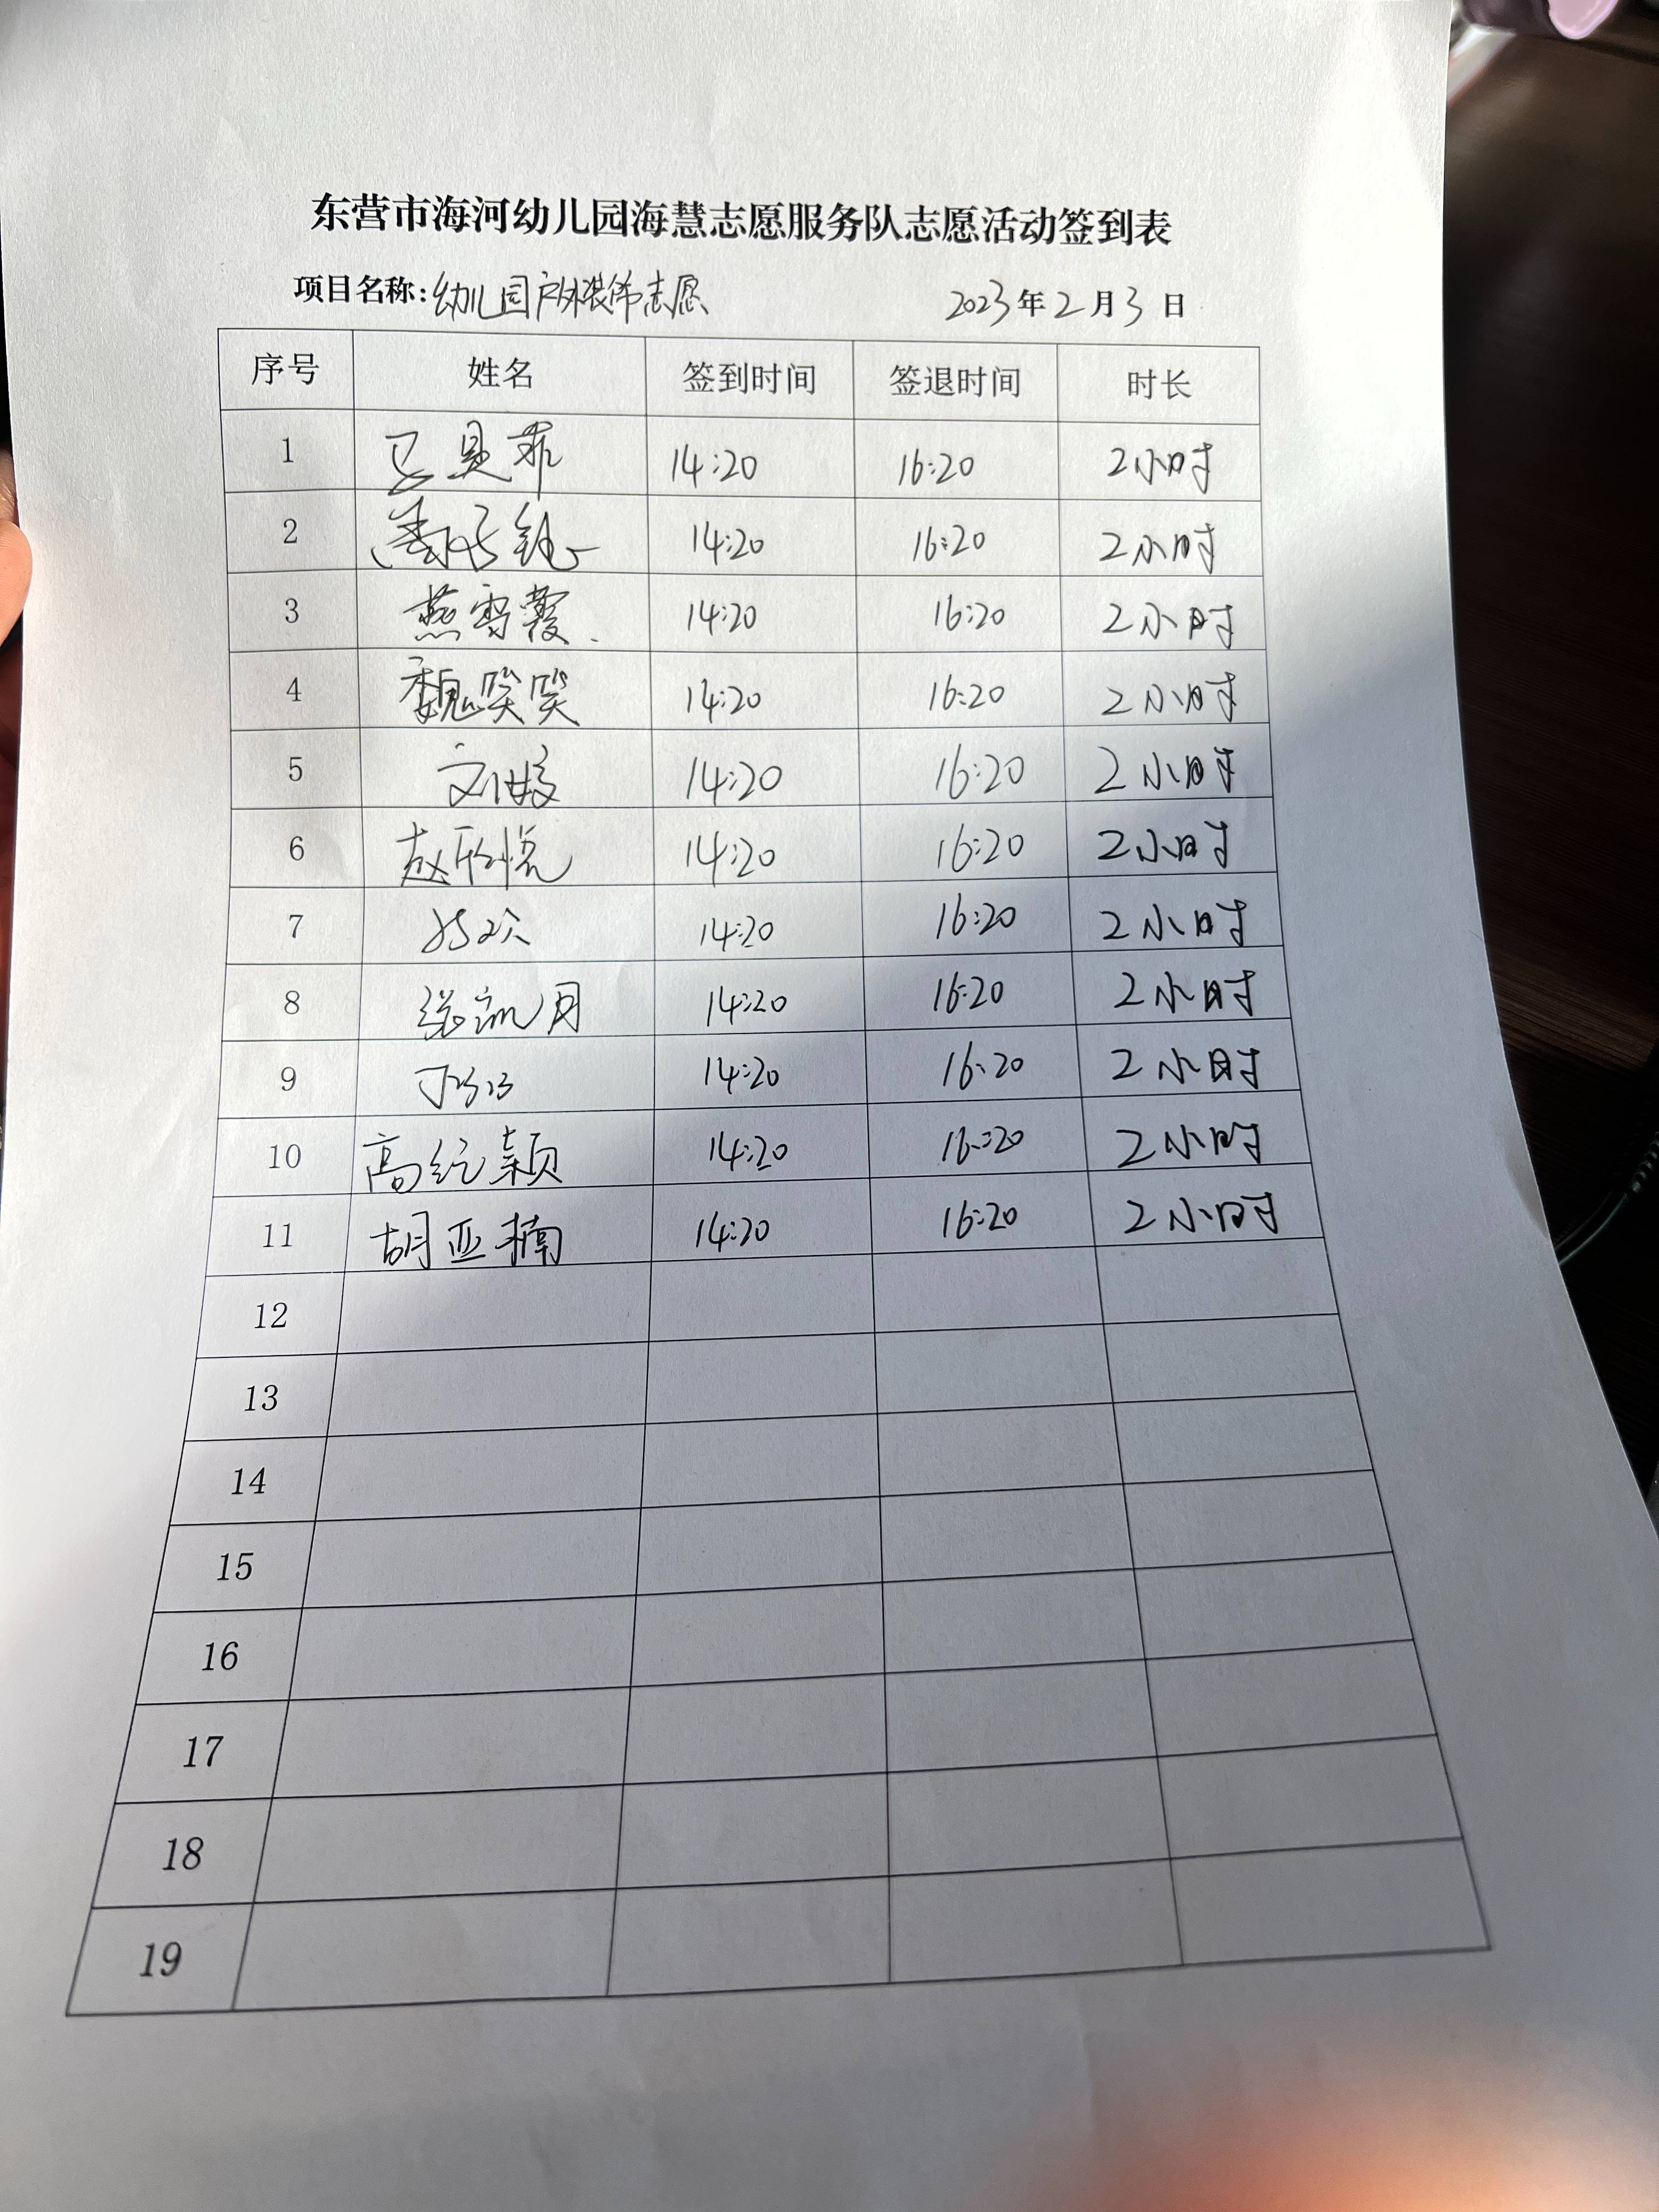 东营市海河幼儿园海慧志愿服务队志愿活动签到表
项目名称:幼儿园户外装饰志愿 2023年2月3日
序号 姓名 签到时间 签退时间 时长
1 14:20 16:20 2小时
2 14:20 16:20 2小时
3 燕雪霞 14:20 16:20 2小时
4 魏笑笑 14:20 16:20 2小时
5 刘婷 14:20 16:20 2小时
6 赵欣悦 14:20 16:20 2小时
7 14:20 16:20 2小时
8 月 14:20 16:20 2小时
9 14:20 16:20 2小时
10 高纪颖 14:20 16:20 2小时
11 胡亚楠 14:20 16:20 2小时
12
13
14
15
16
17
18
19